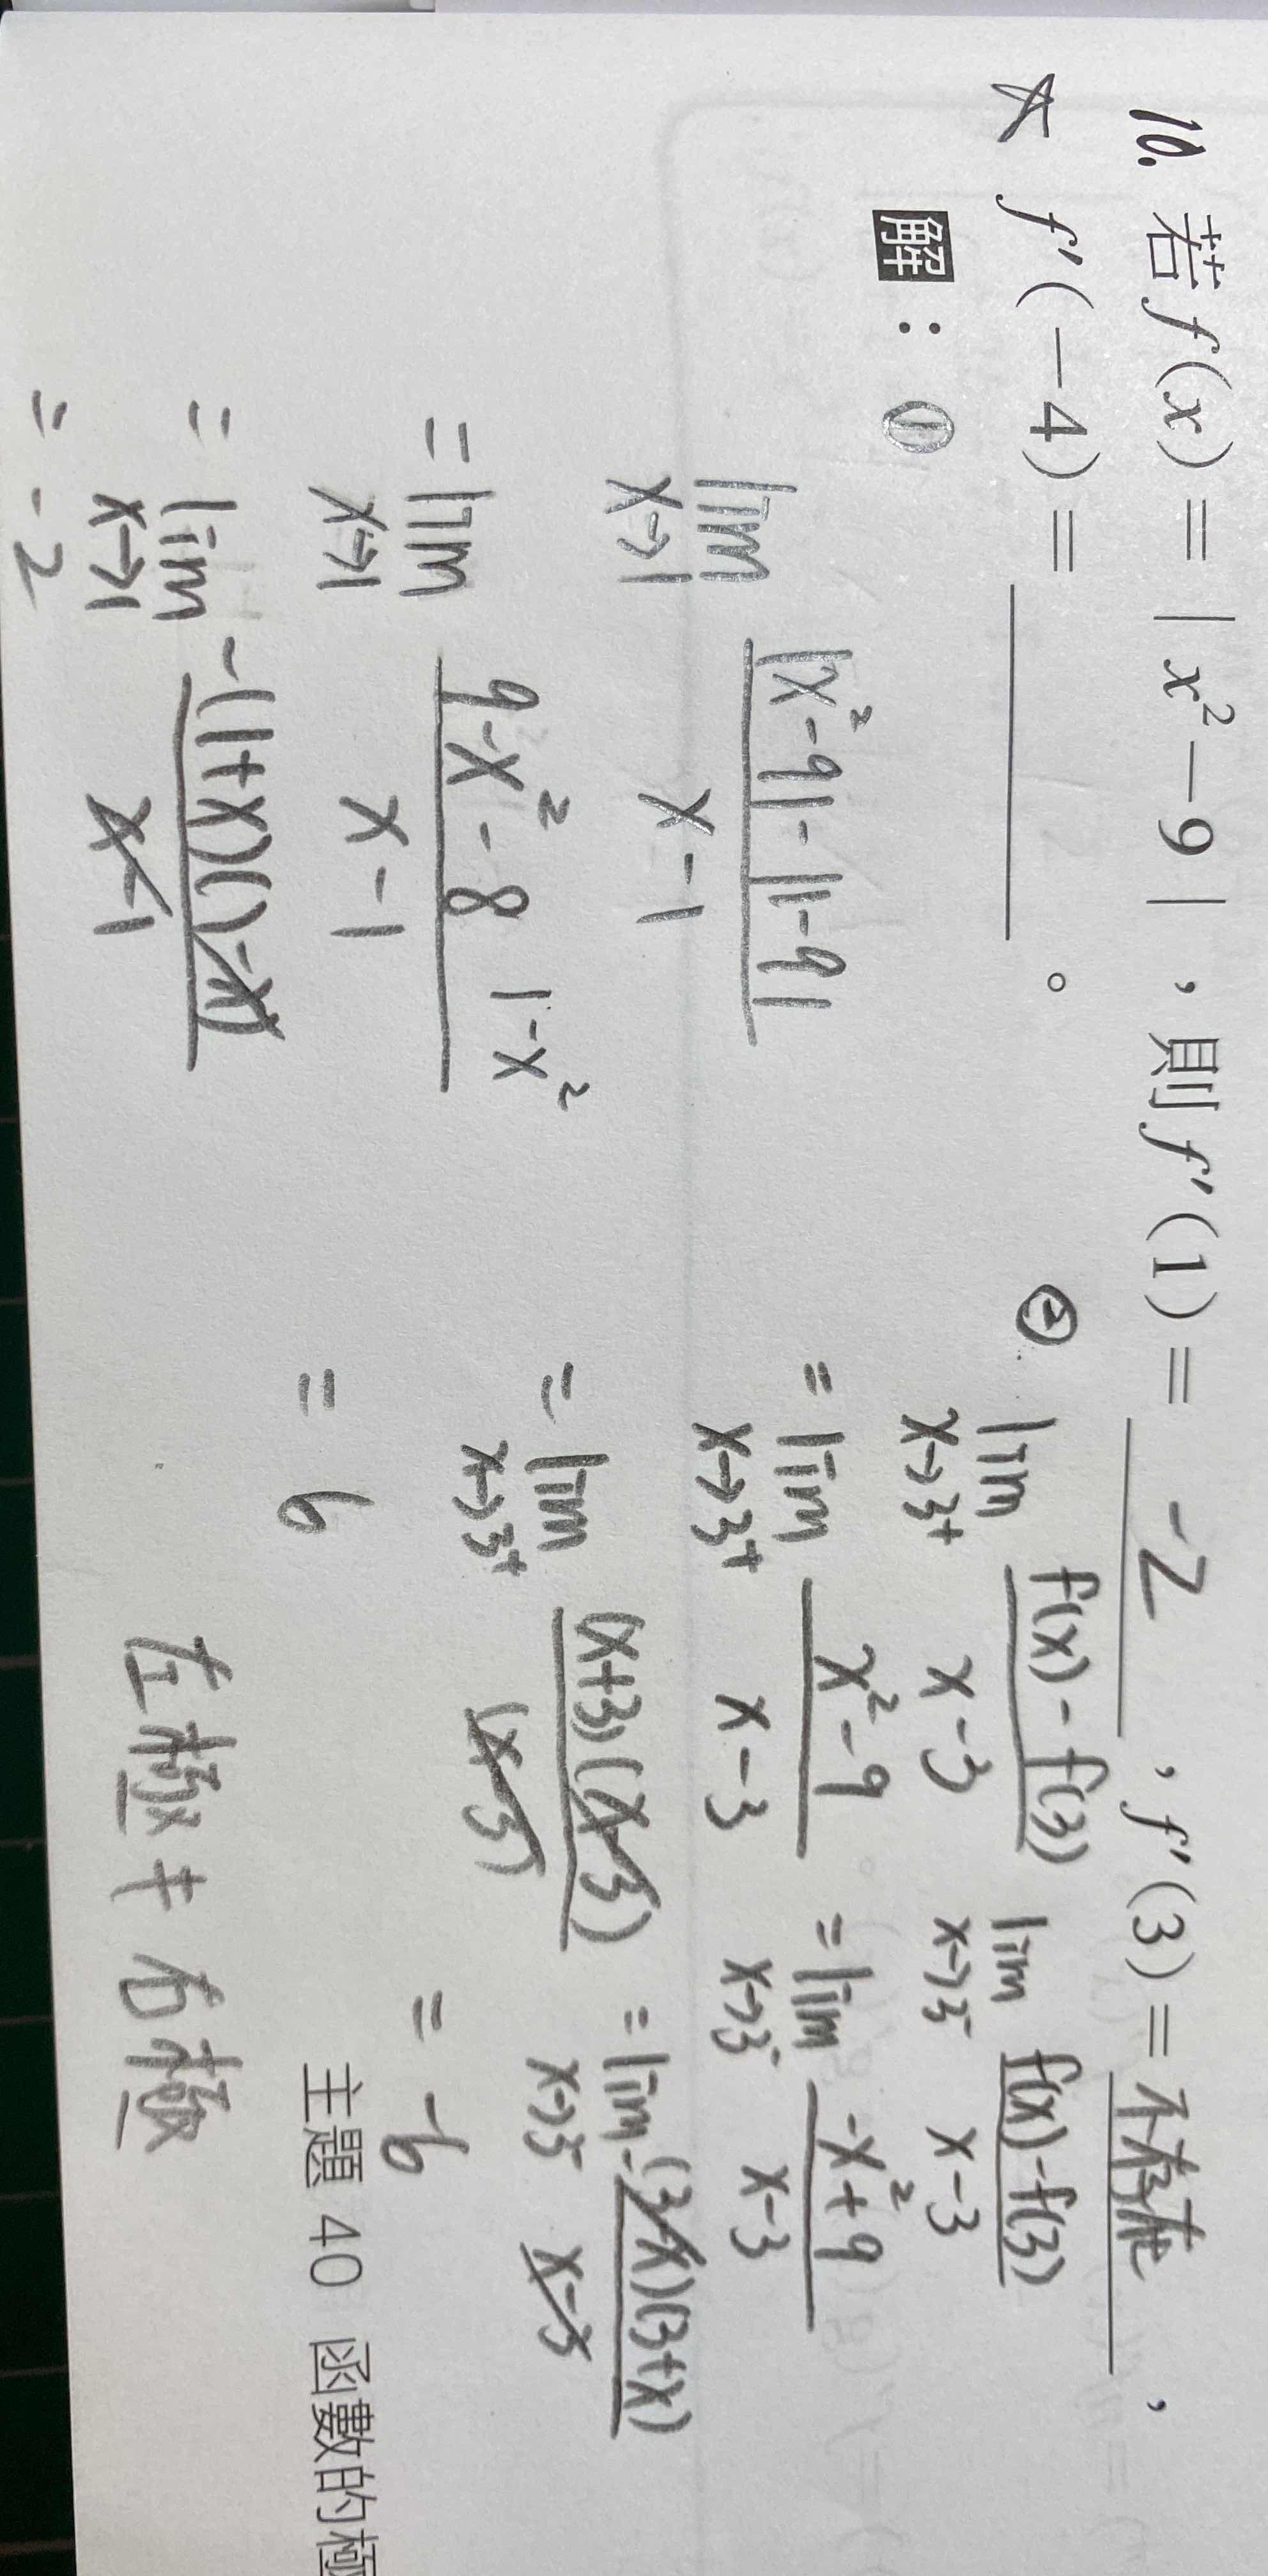 10. 若 f(x) = | x² − 9 |，則 f'(1) = -2，f'(3) = 不存在，
f'(−4) = ________。
解：①
lim x→1 (|x²-9| - |1-9|)/(x-1)
= lim x→1 (9-x²-8)/(x-1) 1-x²
= lim x→1 -(1+x)(1-x)/(x-1)
= -2
②
lim x→3⁺ (f(x)-f(3))/(x-3)
= lim x→3⁺ (x²-9)/(x-3)
= lim x→3⁺ (x+3)(x-3)/(x-3)
= 6
lim x→3⁻ (f(x)-f(3))/(x-3)
= lim x→3⁻ (-x²+9)/(x-3)
= lim x→3⁻ -(3-x)(3+x)/(x-3)
= -6
左極 ≠ 右極
主題 40 函數的極